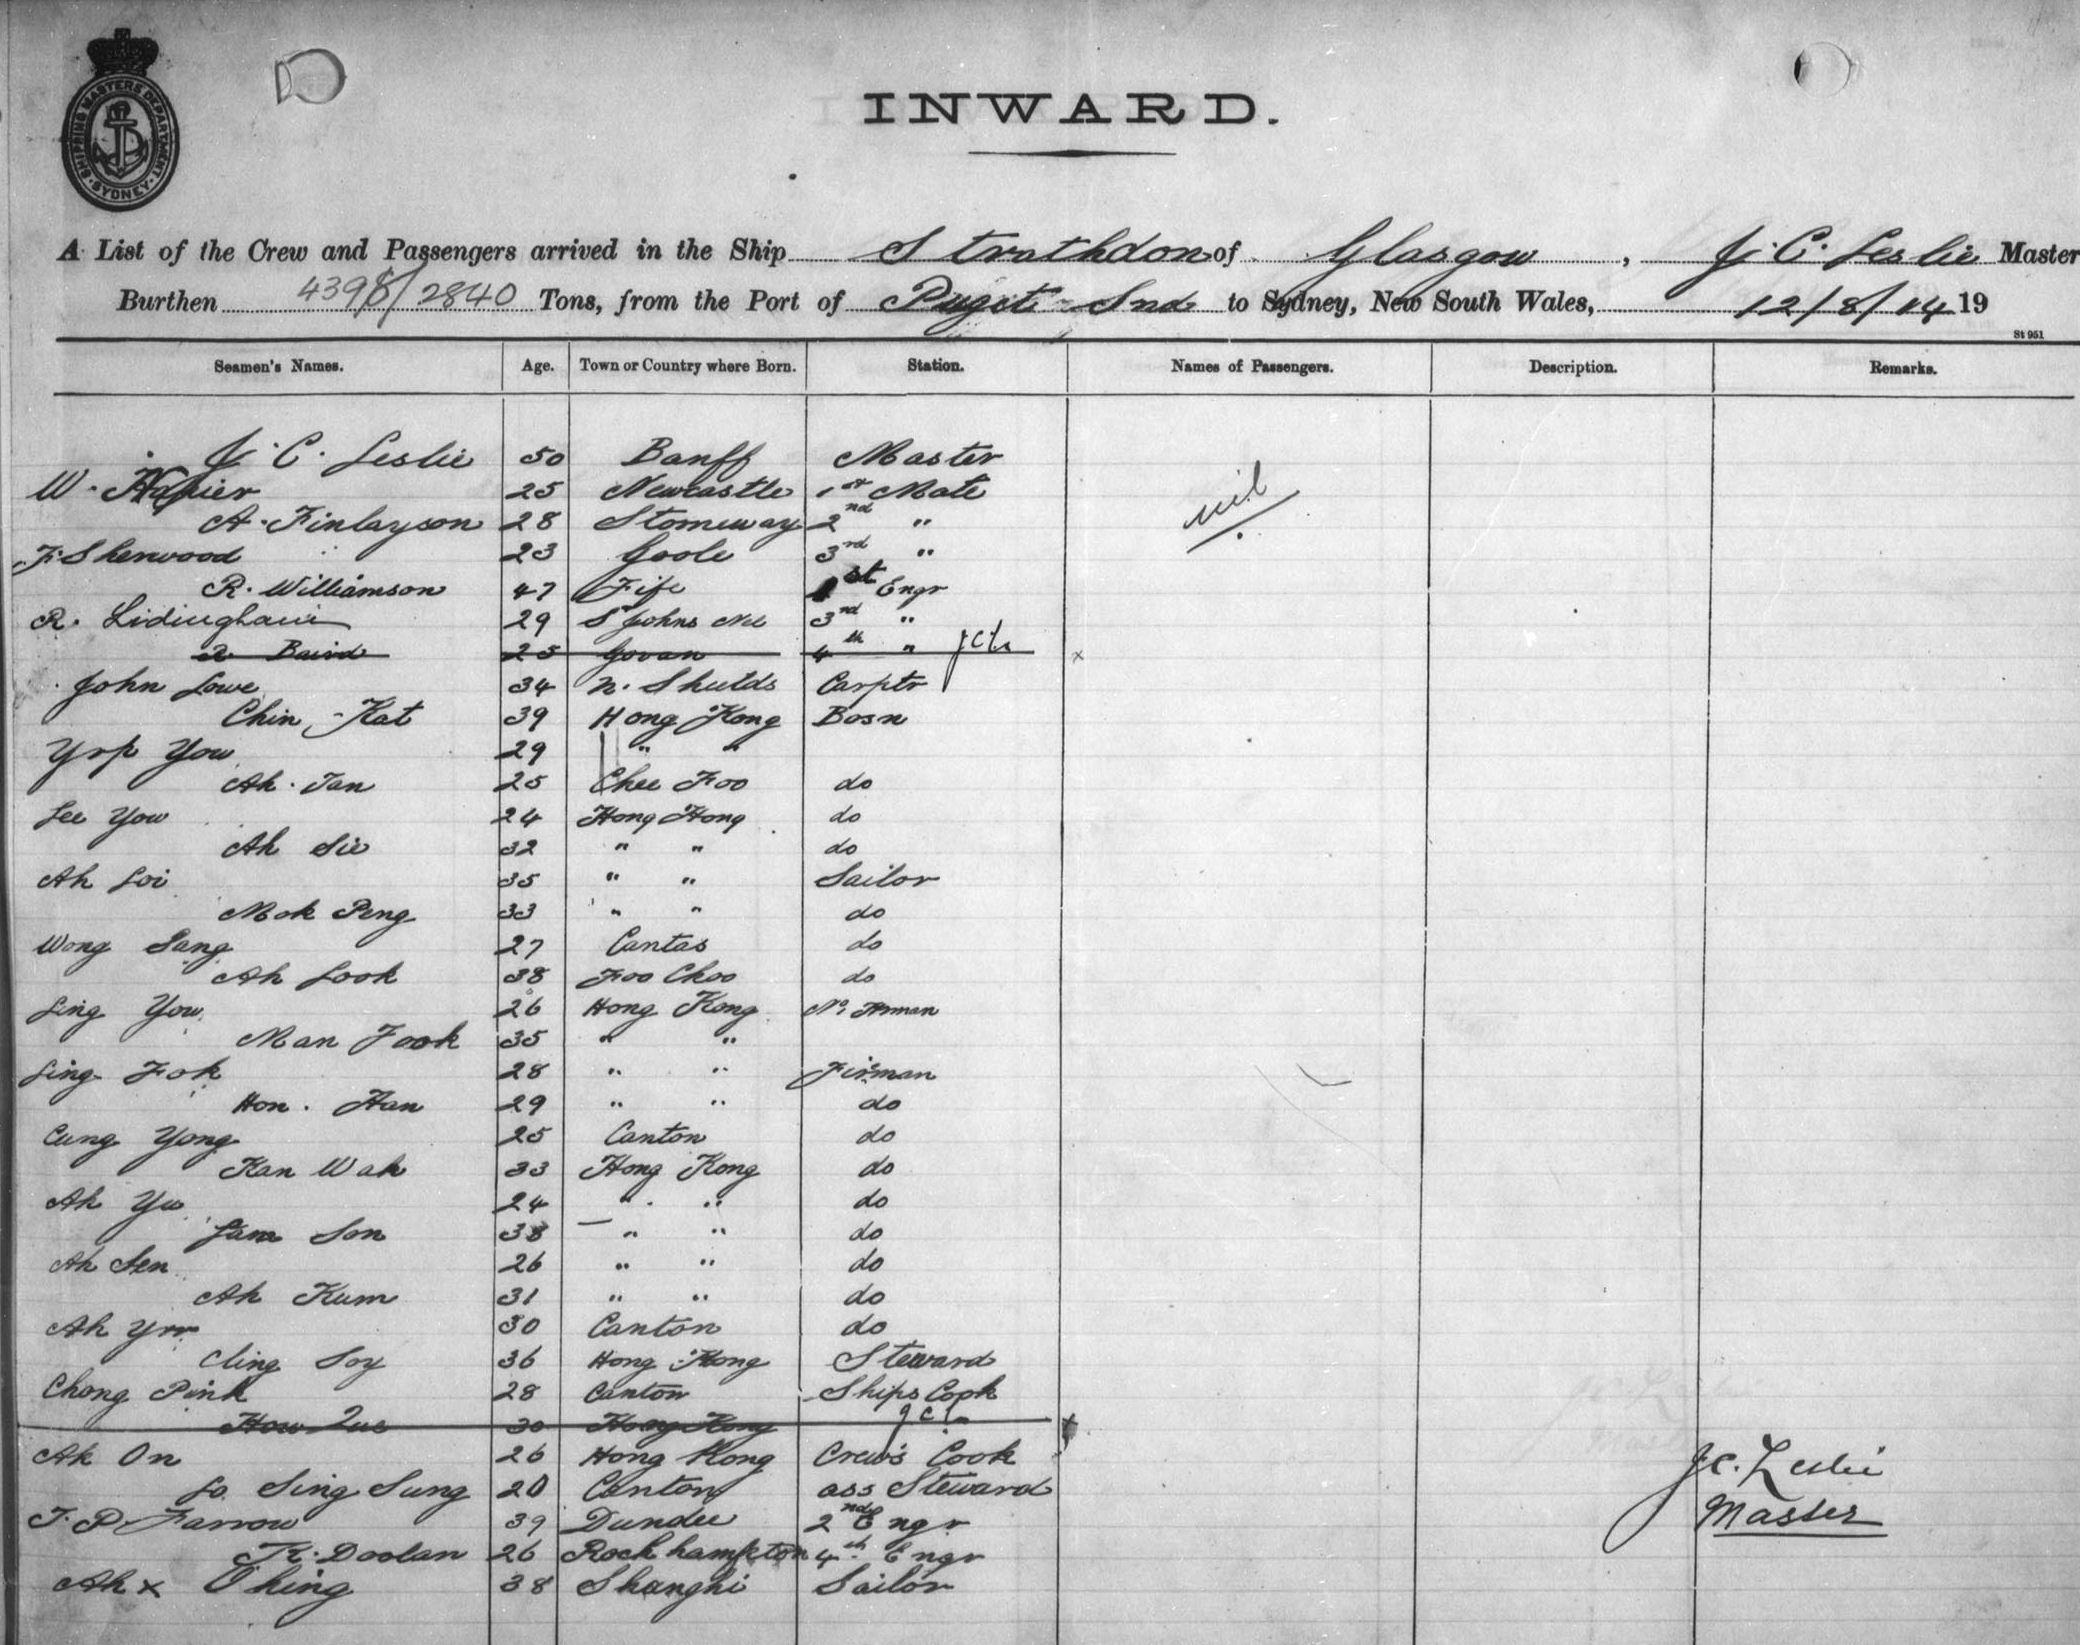 SHIPPING MASTERS DEPARTMENT
SYDNEY
INWARD.
A List of the Crew and Passengers arrived in the Ship Strathdon of Glasgow, J. C. Leslie Master
Burthen 4398/2840 Tons, from the Port of Puget Snd to Sydney, New South Wales, 12/8/14 19
St 951
Seamen's Names. Age. Town or Country where Born. Station. Names of Passengers. Description. Remarks.
J. C. Leslie 50 Banff Master
W. Napier 25 Newcastle 1st Mate nil
A. Finlayson 28 Stornway 2nd "
F. Sherwood 23 Goole 3rd "
R. Williamson 47 Fife 1st Engr
R. 29 St Johns 3rd "
R Baird 25 Govan 4th " JCL x
John Lowe 34 N. Sheilds Carptr
Chin Kat 39 Hong Kong Bosn
Yip You 29 " "
Ah Tan 25 Chee Foo do
Lee You 24 Hong Kong do
Ah Sie 32 " " do
Ah Loi 35 " " Sailor
Mok Peng 33 " " do
Wong Sang 27 do
Ah Look 38 Foo Choo do
Ling You 26 Hong Kong
Man Fook 35 " "
Ling Fok 28 " " Firman
Hon. Han 29 " " do
Cung Yong 25 Canton do
Kan Wah 33 Hong Kong do
Ah Yu 24 " " do
Lam Son 38 " " do
Ah Sen 26 " " do
Ah Kum 31 " " do
Ah 30 Canton do
Cling Soy 36 Hong Kong Steward
Chong Pink 28 Canton Ships Cook
How 30 Hong Kong JCL x
Ah On 26 Hong Kong Crew's Cook
Lo Sing Sung 20 Canton ass Steward
J. C. Leslie
T. P. Farrow 39 Dundee 2nd Engr
Master
K. Doolan 26 Rockhampton 4th Engr
Ah x Ching 38 Shanghi Sailor